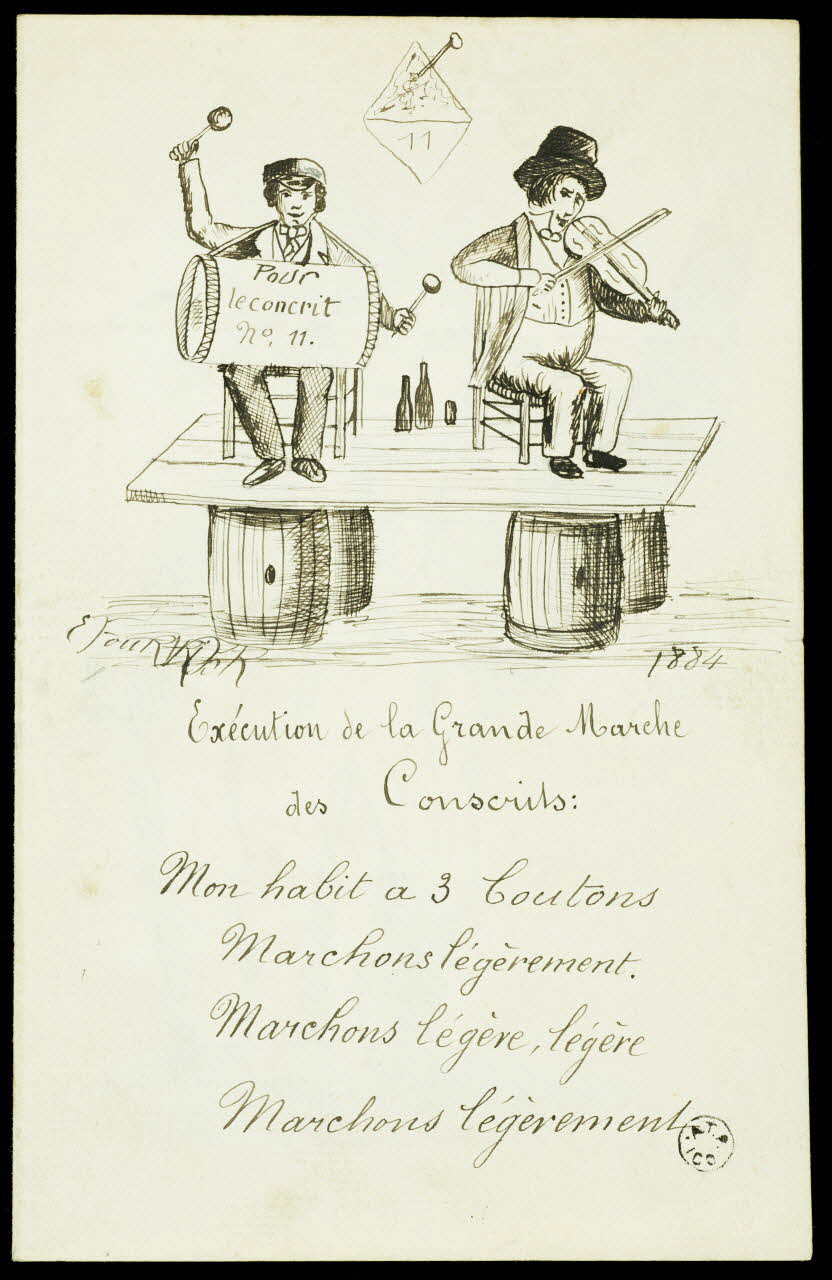 11
Pour
le concrit
No, 11.
1884
Exécution de la Grande Marche
des Conscrits:
Mon habit a 3 boutons
Marchons légèrement.
Marchons légère, légère
Marchons légèrement